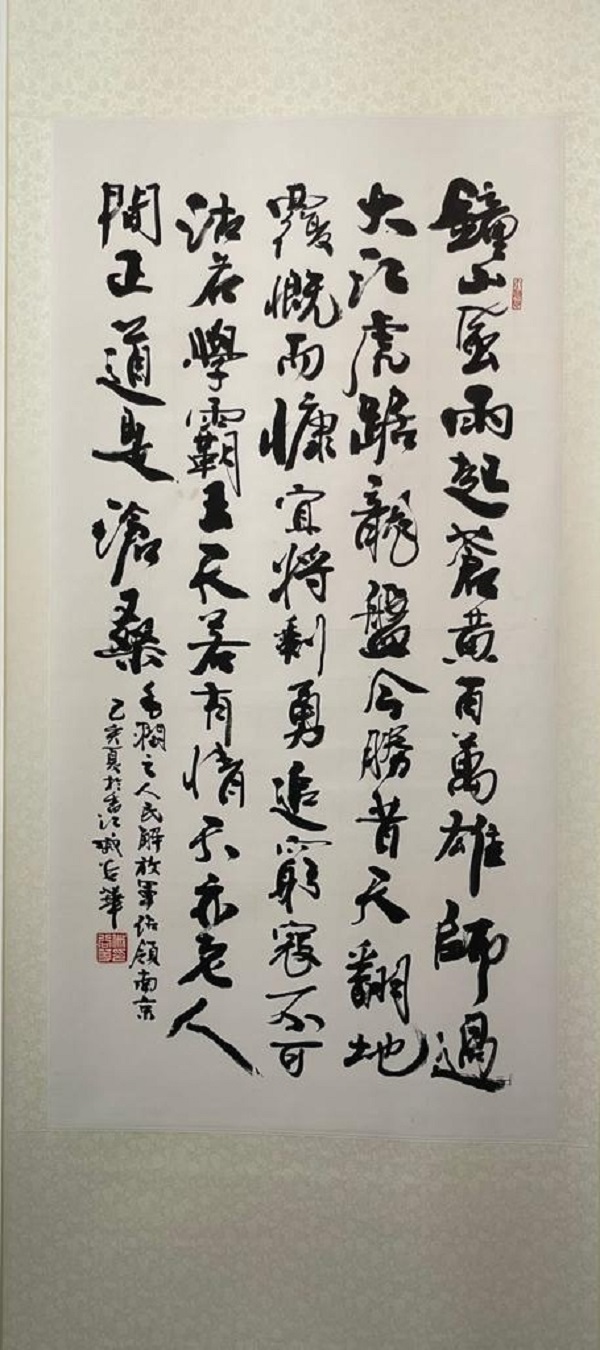 鐘山風雨起蒼黄百萬雄師過
大江虎踞龍盤今勝昔天翻地
覆慨而慷宜將剩勇追窮寇不可
沽名學霸王天若有情天亦老人
間正道是滄桑
毛潤之人民解放軍佔領南京
乙亥夏於香江